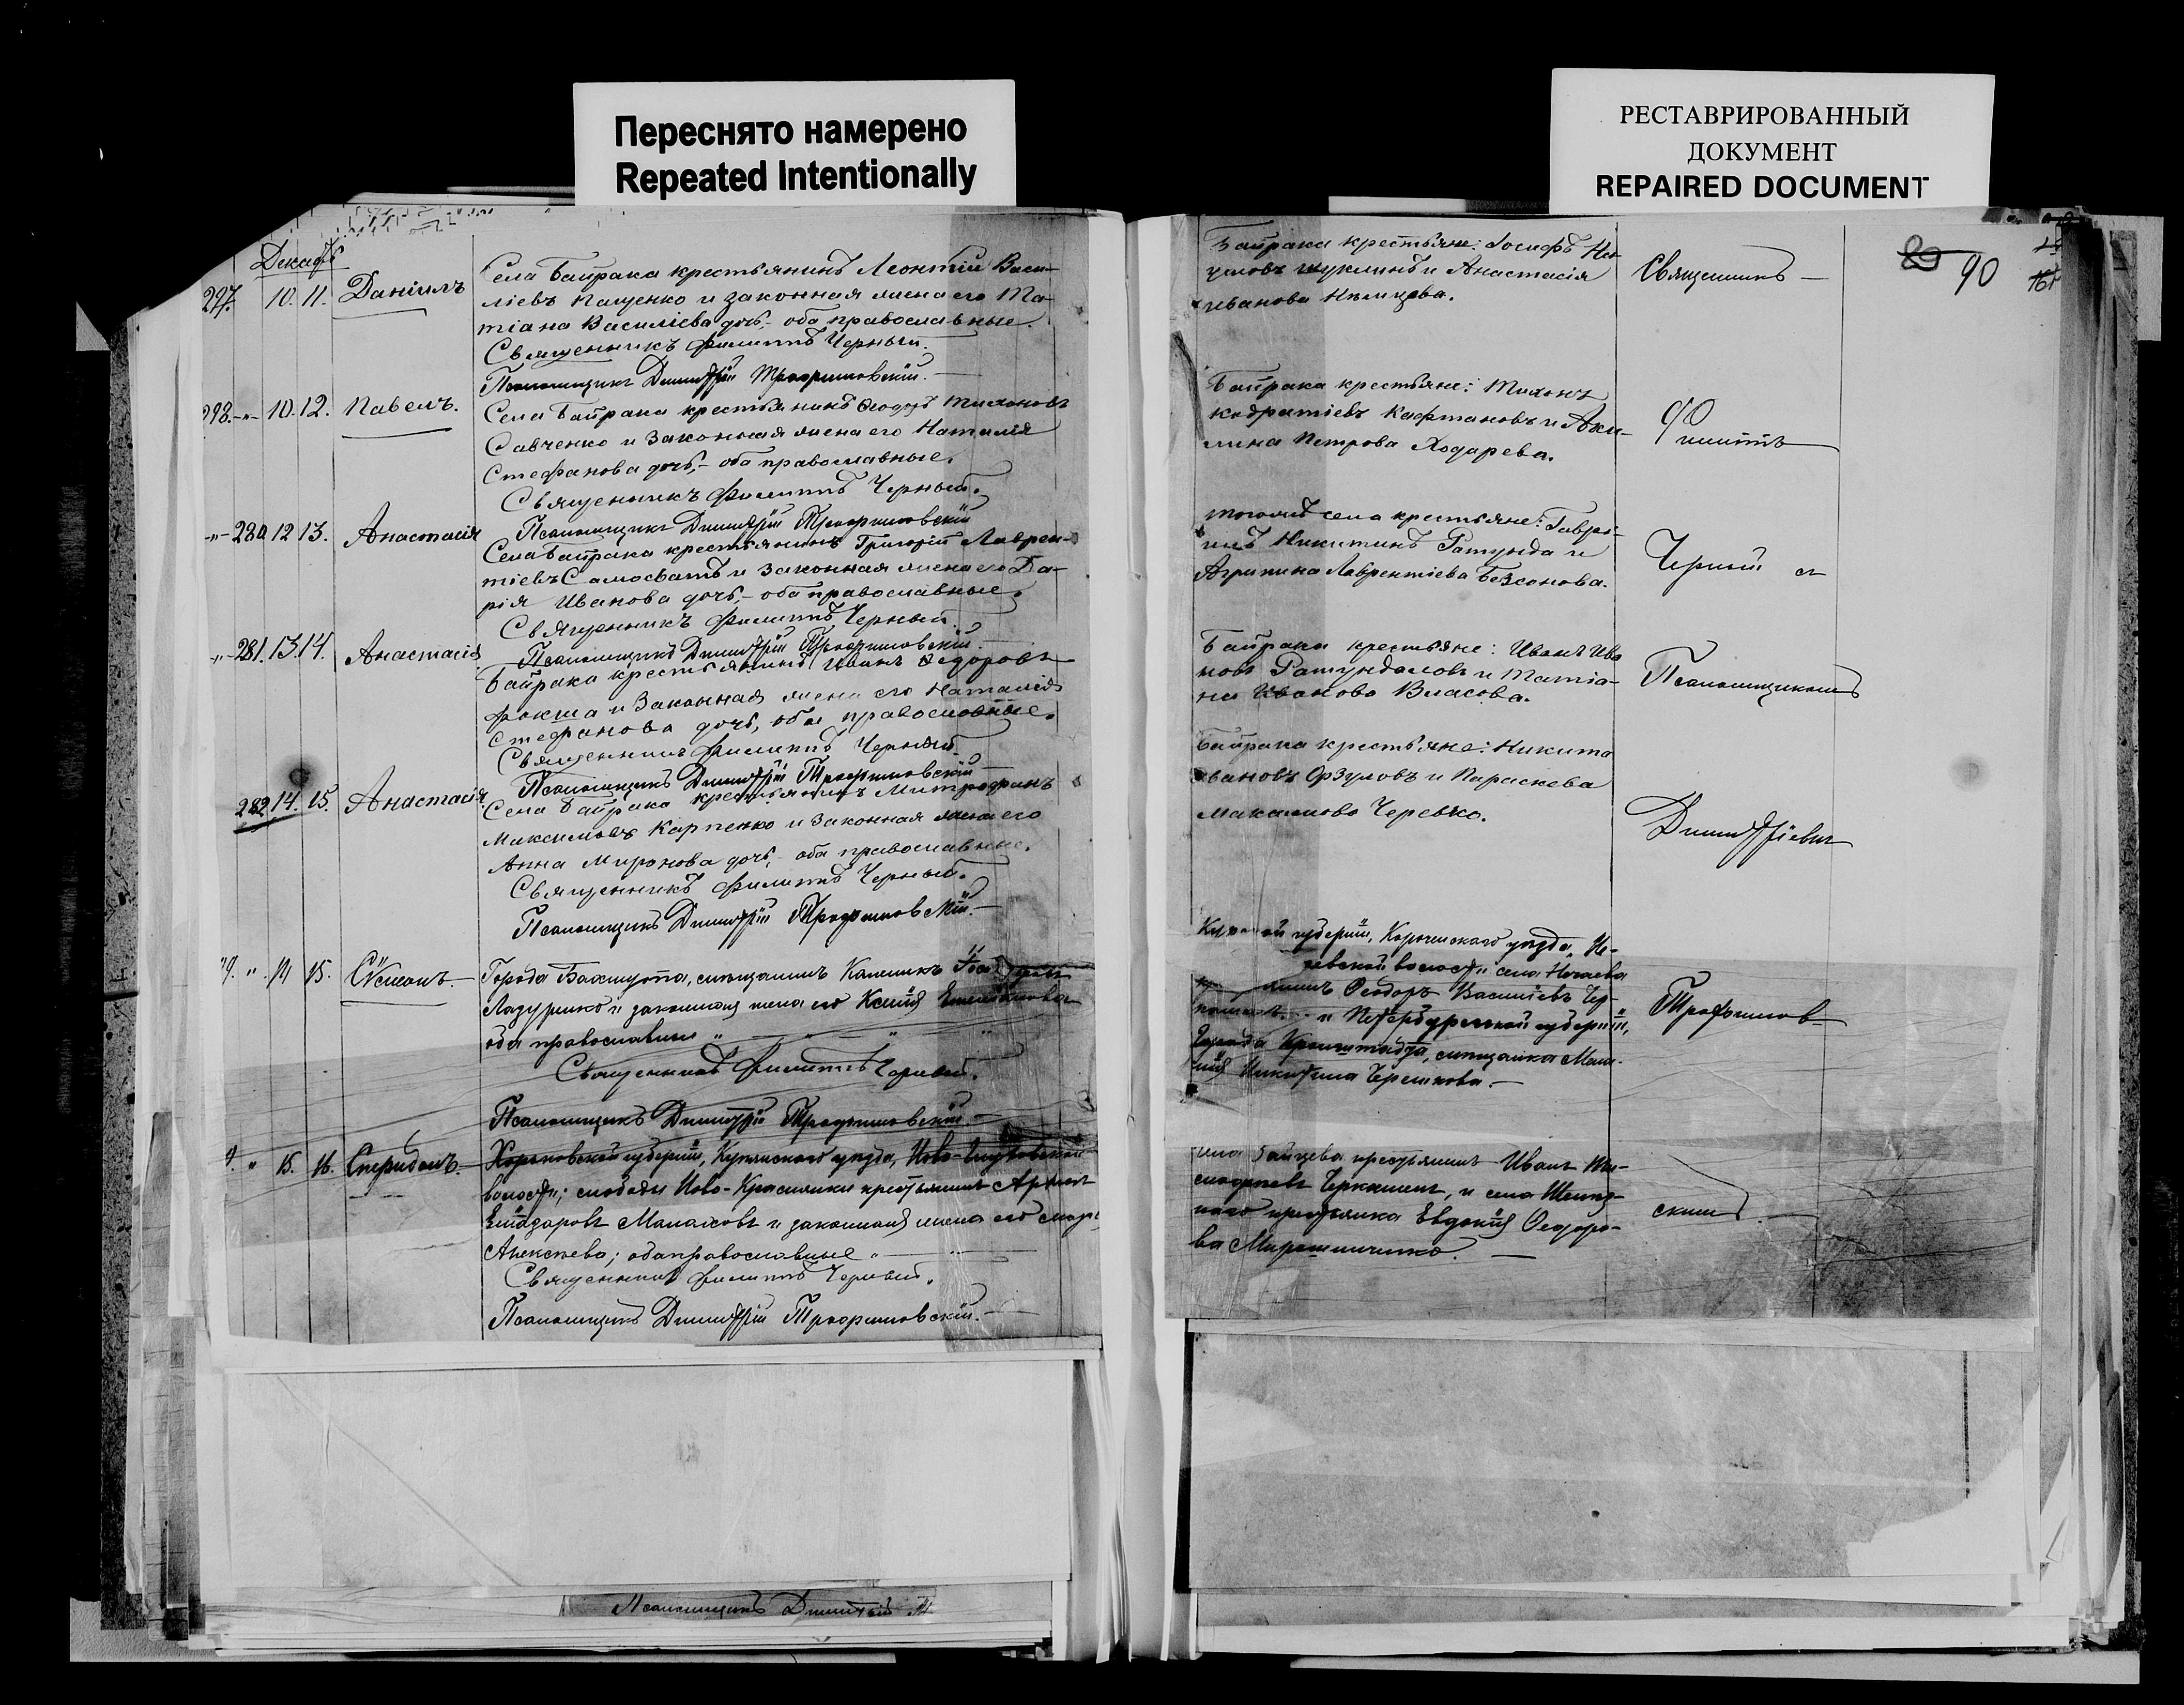 Переснято намерено
Repeated Intentionally
РЕСТАВРИРОВАННЫЙ
ДОКУМЕНТ
REPAIRED DOCUMENT
90
Декабрь
297. 10. 11. Даніилъ
Села Байрака крестьянинъ Леонтій Васи-
ліевъ Пащенко и законная жена его Та-
тіана Василіева дочь, оба православные.
Священникъ Филиппъ Черный.
Псаломщикъ Димитрій Трофимовскій.
298. -"- 10. 12. Павелъ.
Села Байрака крестьянинъ Ѳеодоръ Тихоновъ
Савченко и законная жена его Наталія
Стефанова дочь, оба православные.
Священникъ Филиппъ Черный.
Псаломщикъ Димитрій Трофимовскій
-"- 280 12 13. Анастасія
Села Байрака крестьянинъ Григорій Лаврен-
тіевъ Самосватъ и законная жена его Да-
рія Иванова дочь, оба православные.
Священникъ Филиппъ Черный.
Псаломщикъ Димитрій Трофимовскій.
-"- 281. 13. 14. Анастасія
Байрака крестьянинъ Иванъ Ѳедоровъ
Фокша и законная жена его Наталія
Стефанова дочь, оба православные.
Священникъ Филиппъ Черный.
Псаломщикъ Димитрій Трофимовскій
282 14. 15. Анастасія
Села Байрака крестьянинъ Митрофанъ
Максимовъ Карпенко и законная жена его
Анна Миронова дочь, оба православные.
Священникъ Филиппъ Черный.
Псаломщикъ Димитрій Трофимовскій.
" 14 15. Сѵмеонъ.
Города Бахмута, мѣщанинъ
и законная жена его Ксенія Емельянова
оба православные " " "
Священникъ Филиппъ Черный.
Псаломщикъ Димитрій Трофимовскій.
" 15. 16. Спиридонъ.
Харьковской губерніи, Купянскаго уѣзда, Ново-
волости; слободы Ново-Краснянки крестьянинъ
и законная жена его
Алексѣева; оба православные "
Священникъ Филиппъ Черный.
Псаломщикъ Димитрій Трофимовскій.
Псаломщикъ Димитрій
Байрака крестьяне: Іосифъ
Шуклинъ и Анастасія
Иванова Нѣмцева.
Байрака крестьяне: Тихонъ
Кодратіевъ Кафтановъ и Аки-
лина Петрова Ходарева.
того же села крестьяне: Гаврі-
илъ Никитинъ Ратунда и
Агрипина Лаврентіева Безсонова.
Байрака крестьяне: Иванъ Ива
новъ Ратундаловъ и Татіа-
на Иванова Власова.
Байрака крестьяне: Никита
Ивановъ Фрзуловъ и Параскева
Макалмова Черевко.
губерніи, Корочанскаго уѣзда,
волости села Нечаева
Ѳеодоръ Василіевъ Чер-
и Петербургской губерніи,
Города Кронштадта, мѣщанка
Никитина Черепкова.
села Зайцева крестьянинъ Иванъ
Черкашенъ, и села
крестьянка Евдокія Ѳеодоро-
ва Мирошниченко.
Священникъ
Филиппъ
Черный съ
Псаломщикомъ
Димитріемъ
Трофимов-
скимъ.